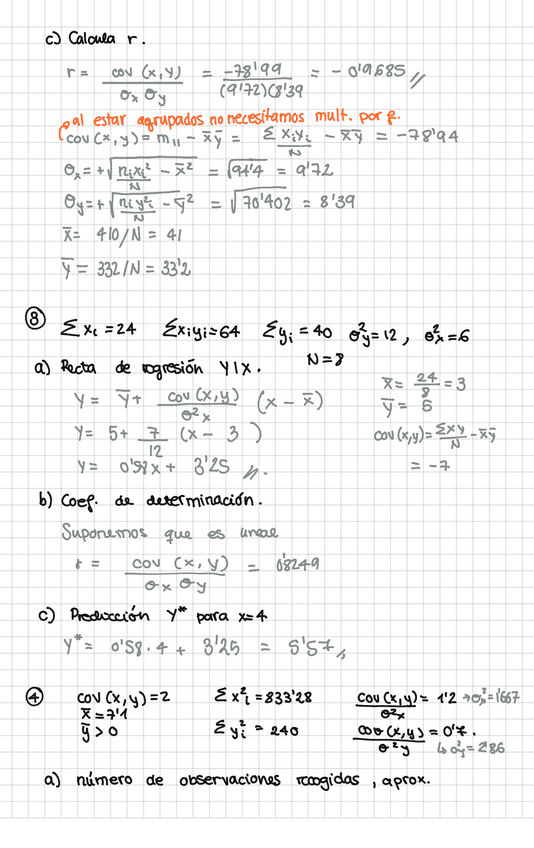 c) Calcula r.
r = cov (x,y) / σx σy = -78'99 / (9'72)(8'39 = -0'9685 //
al estar agrupados no necesitamos mult. por f.
cov(x,y) = m11 - x̄ȳ = Σ xiyi / N - x̄ȳ = -78'94
σx = +√(nixi² / N - x̄²) = √94'4 = 9'72
σy = +√(niyi² / N - ȳ²) = √70'402 = 8'39
x̄ = 410/N = 41
ȳ = 332/N = 33'2
⑧ Σxi = 24 Σxiyi = 64 Σyi = 40 σ²y = 12, σ²x = 6
N = 8
a) Recta de regresión Y|X.
x̄ = 24/8 = 3
y = ȳ + cov(x,y) / σ²x (x - x̄)
ȳ = 5
y = 5 + 7/12 (x - 3)
cov(x,y) = Σxy / N - x̄ȳ
y = 0'58x + 3'25 //.
= -7
b) Coef. de determinación.
Suponemos que es lineal
r = cov (x,y) / σx σy = 0'8249
c) Predicción Y* para x=4
Y* = 0'58 · 4 + 3'25 = 5'57 //
④ cov(x,y) = 2 Σx²i = 833'28 cov(x,y) / σ²x = 1'2 → σx² = 1'667
x̄ = 7'1
ȳ > 0 Σyi² = 240 cov(x,y) / σ²y = 0'7.
↳ σ²y = 2'86
a) número de observaciones recogidas, aprox.